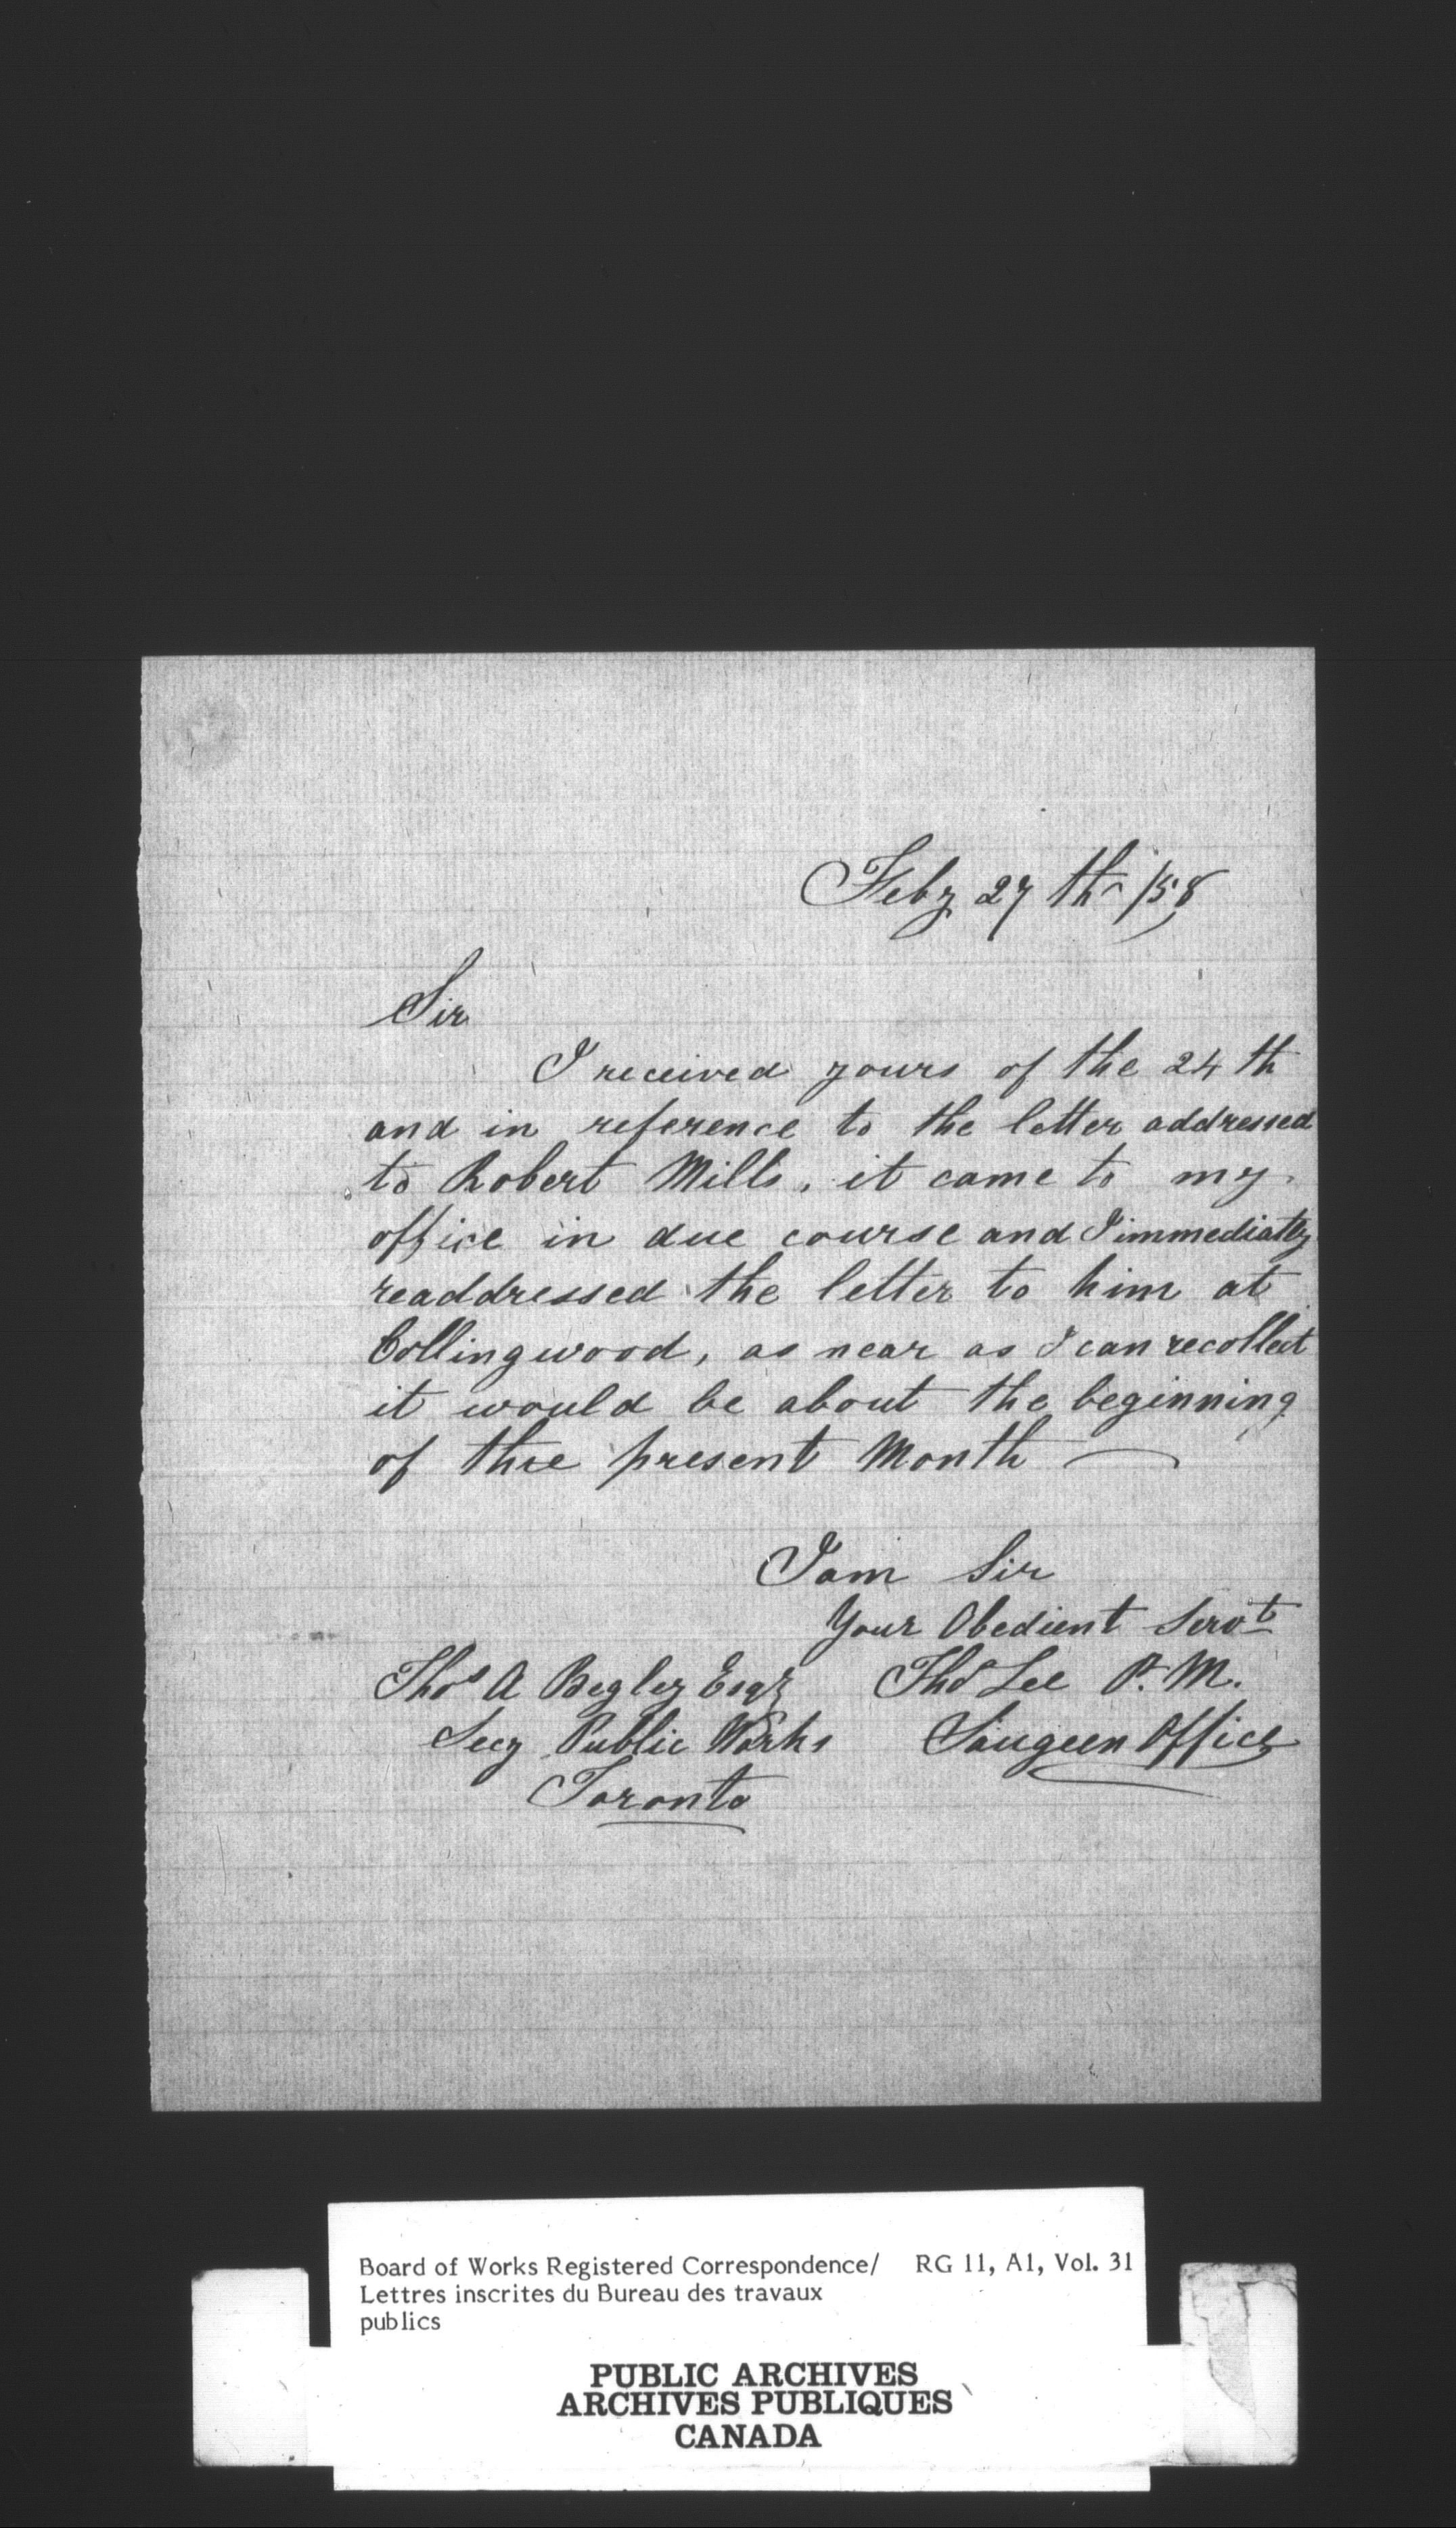 Feby 27th /58
Sir
I received yours of the 24th
and in reference to the letter addressed
to Robert Mills, it came to my
office in due course and I immediatly
readdressed the letter to him at
Collingwood, as near as I can recollect
it would be about the beginning
of the present Month —
I am Sir
Your Obedient Servt
Thos A Begley Esqr Thos Lee P. M.
Secy Public Works Saugeen Office
Toronto
Board of Works Registered Correspondence/ RG 11, A1, Vol. 31
Lettres inscrites du Bureau des travaux
publics
PUBLIC ARCHIVES
ARCHIVES PUBLIQUES
CANADA